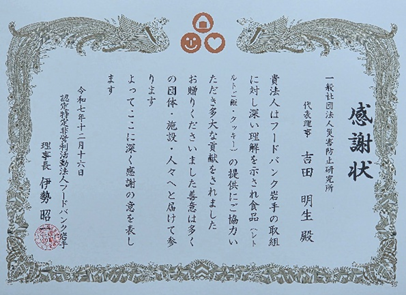 感謝状
一般社団法人災害防止研究所
代表理事 吉田 明生 殿
貴法人はフードバンク岩手の取組
に対し深い理解を示され食品(レト
ルトご飯・クッキー)の提供にご協力い
ただき多大な貢献をされました
お贈りくださいました善意は多く
の団体・施設・人々へと届けて参
ります
よって、ここに深く感謝の意を表し
ます
令和七年十二月十六日
認定特定非営利活動法人フードバンク岩手
理事長 伊勢 昭